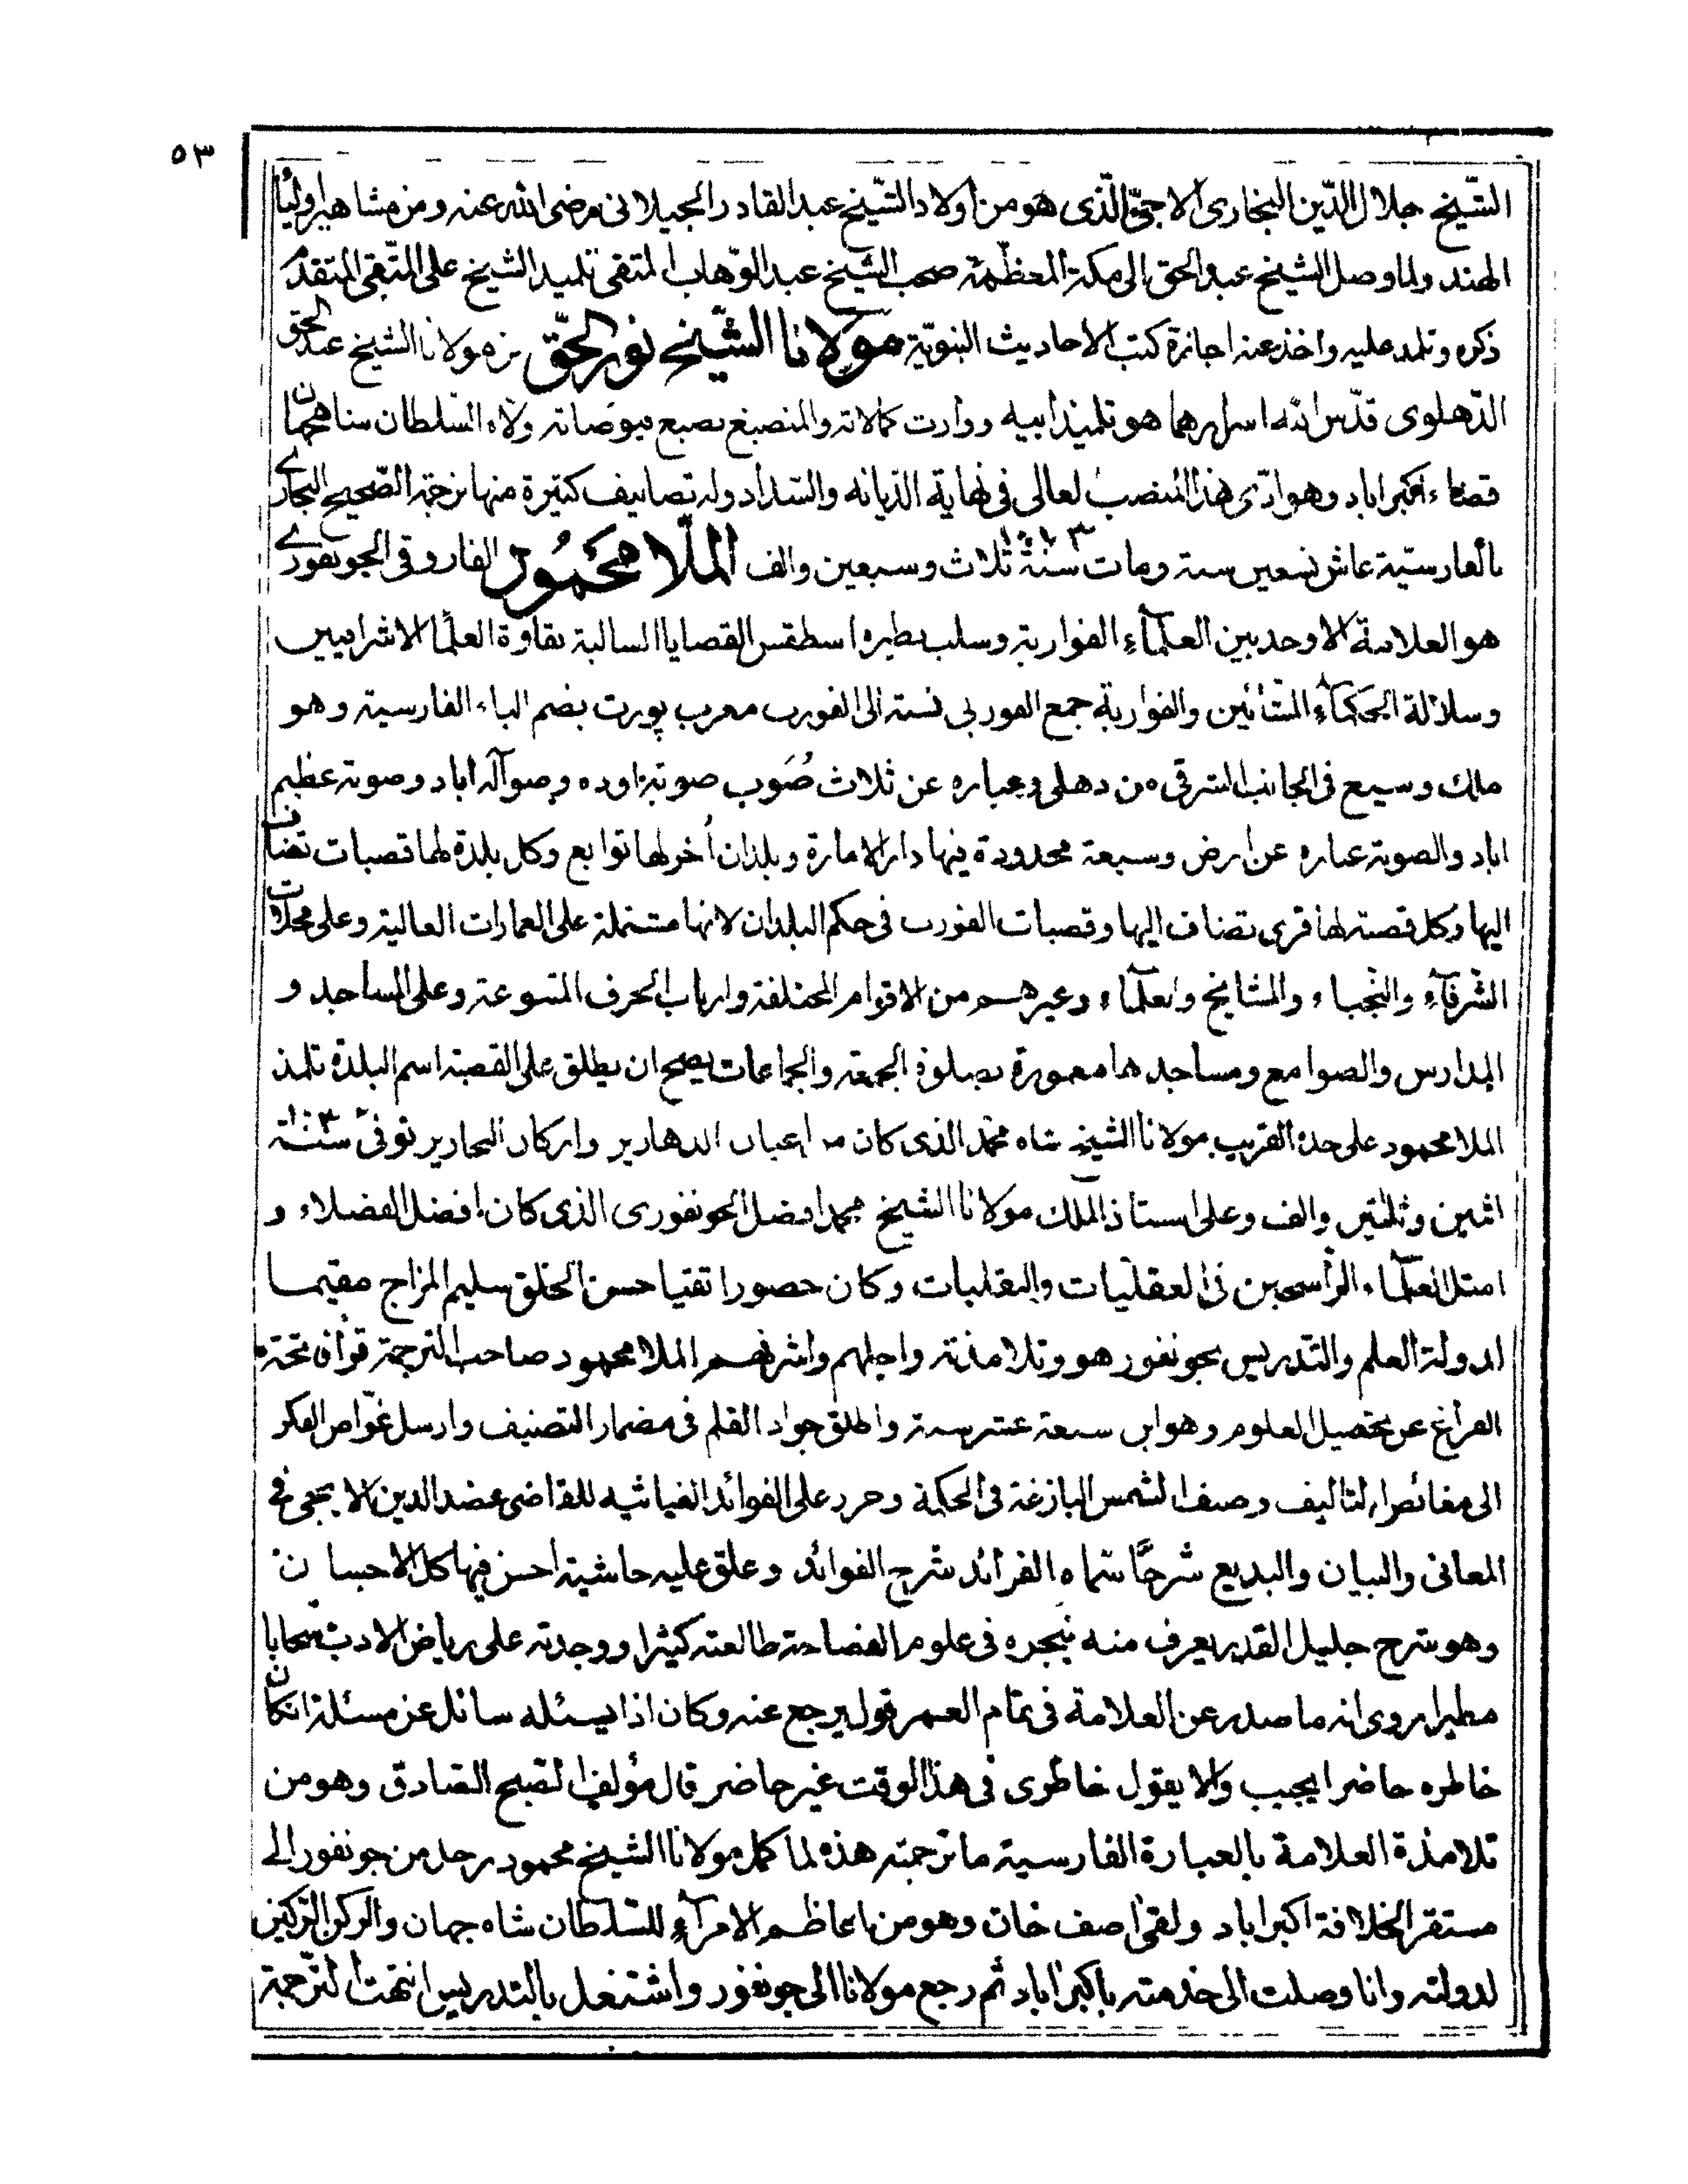 ٥٣
الشيخ جلال الدين البخارى الاجى الذى هو من اولاد الشيخ عبد القادر الجيلانى رضى الله عنه ومن مشاهير اوليا
الهند ولما وصل الشيخ عبد الحق الى مكة المعظمة صحب الشيخ عبد الوهاب المتقى تلميذ الشيخ على المتقى المتقدم
ذكره وتلمذ عليه واخذ عنه اجازة كتب الاحاديث النبوية مولانا الشيخ نور الحق بن مولانا الشيخ عبد الحق
الدهلوى قدس الله اسرارهما هو تلميذ ابيه ووارث كمالاته والمنصبغ بصبغ فيوضاته ولاه السلطان شاهجهان
قضاء اكبراباد وهو ادى هذا المنصب العالى فى نهاية الديانة والسداد وله تصانيف كثيرة منها ترجمة الصحيح البخارے
بالفارسية عاش تسعين سنة ومات سنة ١٠٧٣ ثلاث وسبعين والف الملا محمود الفاروقى الجونفورے
هو العلامة الاوحد بين العلماء الفواربة وسلب نظيره اسطقس القضايا السالبة نقاوة العلما الاشراقيين
وسلالة الحكماء المشائين والفواربة جمع الفوربى نسبة الى الفورب معرب پورب بضم الباء الفارسية وهو
ملك وسيع فى الجانب الشرقى من دهلى وعبارة عن ثلاث صُوَب صوبة اوده وصوبة اله اباد وصوبة عظيم
اباد والصوبة عبارة عن ارض وسيعة محدودة فيها دار الامارة وبلدان اُخر لها توابع وكل بلدة لها قصبات تضاف
اليها وكل قصبة لها قرى تضاف اليها وقصبات الفورب فى حكم البلدان لانها مشتملة على العمارات العالية وعلى محلات
الشرفاء والنجباء والمشايخ والعلماء وغيرهم من الاقوام المختلفة وارباب الحرف المتنوعة وعلى المساجد و
المدارس والصوامع ومساجدها معمورة بصلوة الجمعة والجماعات يصح ان يطلق على القصبة اسم البلدة تلمذ
الملا محمود على جده القريب مولانا الشيخ شاه محمد الذى كان من اعيان الدهارير واركان النحارير توفى سنة ١٠٣٢
اثنين وثلثين والف وعلى استاذ الملك مولانا الشيخ محمد افضل الجونفورى الذى كان افضل الفضلاء و
امثل العلماء الراسخين فى العقليات والنقليات وكان حصورا تقيا حسن الخلق سليم المزاج مقيما
لدولة العلم والتدريس بجونفور هو وتلامذته واجلهم واشرفهم الملا محمود صاحب الترجمة قرأ فاتحة
الفراغ عن تحصيل العلوم وهو ابن سبعة عشر سنة واطلق جواد القلم فى مضمار التصنيف وارسل غواص الفكر
الى مغائص التاليف وصنف الشمس البازغة فى الحكمة وحرر على الفوائد الغياثيه للقاضى عضد الدين الايجى فى
المعانى والبيان والبديع شرحًا سماه الفرائد شرح الفوائد وعلق عليه حاشية احسن فيها كل الاحسان
وهو شرح جليل القدر يعرف منه تبحره فى علوم الفصاحة طالعته كثيرا ووجدته على رياض الادب سحابا
مطيرا روى انه ما صدر عن العلامة فى تمام العمر قول يرجع عنه وكان اذا يسئله سائل عن مسئلة ان كان
خاطره حاضرا يجيب والا يقول خاطرى فى هذا الوقت غير حاضر قال مؤلف الصبح الصادق وهو من
تلامذة العلامة بالعبارة الفارسية ما ترجمته هذه لما كمل مولانا الشيخ محمود رحل من جونفور الے
مستقر الخلافة اكبراباد ولقى اصف خان وهو من اعاظم الامراء للسلطان شاه جهان والركن الركين
لدولته وانا وصلت الى خدمته باكبراباد ثم رجع مولانا الى جونفور واشتغل بالتدريس انتهت الترجمة